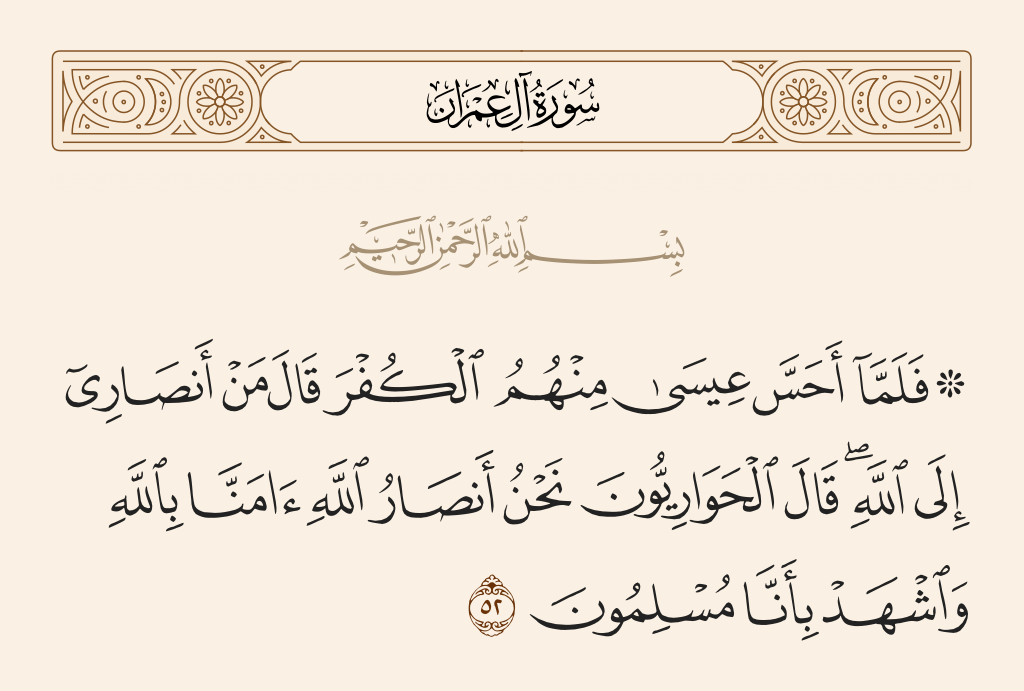 سُورَةُ آلِ عِمْرَانَ
بِسْمِ ٱللَّهِ ٱلرَّحْمَٰنِ ٱلرَّحِيمِ
۞ فَلَمَّآ أَحَسَّ عِيسَىٰ مِنْهُمُ ٱلْكُفْرَ قَالَ مَنْ أَنصَارِىٓ
إِلَى ٱللَّهِ ۖ قَالَ ٱلْحَوَارِيُّونَ نَحْنُ أَنصَارُ ٱللَّهِ ءَامَنَّا بِٱللَّهِ
وَٱشْهَدْ بِأَنَّا مُسْلِمُونَ ٥٢